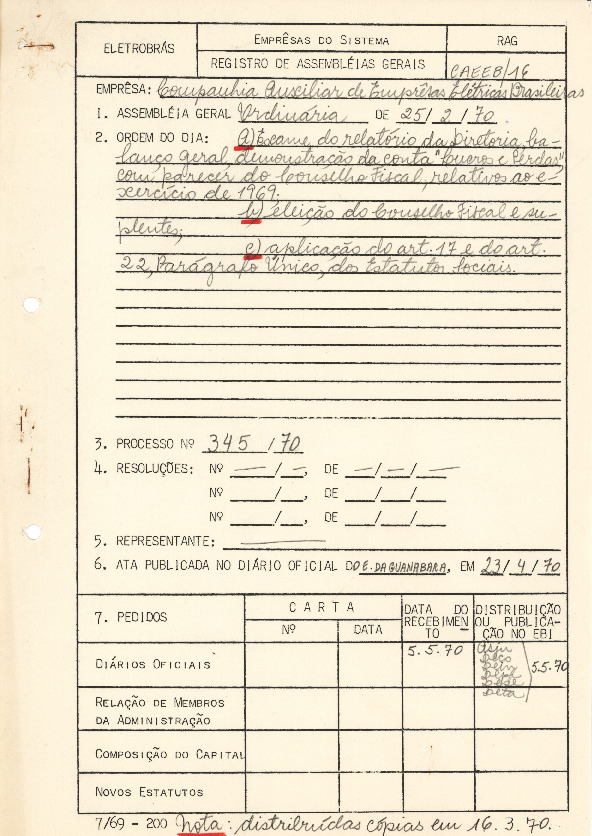 ELETROBRÁS
EMPRÊSAS DO SISTEMA
RAG
REGISTRO DE ASSEMBLÉIAS GERAIS
CAEEB/16
EMPRÊSA: Companhia Auxiliar de Emprêsas Elétricas Brasileiras
1. ASSEMBLÉIA GERAL Ordinária DE 25/2/70.
2. ORDEM DO DIA: a) Exame do relatório da Diretoria, ba-
lanço geral, demonstração da conta "Lucros e Perdas",
com parecer do Conselho Fiscal, relativos ao e-
xercício de 1969;
b) eleição do Conselho Fiscal e su-
plentes;
c) aplicação do art. 17 e do art.
22, Parágrafo Único, dos Estatutos Sociais.
3. PROCESSO Nº 345 /70
4. RESOLUÇÕES: Nº — / —, DE — / — / —
Nº ___/__, DE ___/___/___
Nº ___/__, DE ___/___/___
5. REPRESENTANTE: ———
6. ATA PUBLICADA NO DIÁRIO OFICIAL DO E. DA GUANABARA, EM 23/4/70
7. PEDIDOS
CARTA
Nº
DATA
DATA DO
RECEBIMEN
TO
DISTRIBUIÇÃO
OU PUBLICA-
ÇÃO NO EBI
DIÁRIOS OFICIAIS
5.5.70
5.5.70
RELAÇÃO DE MEMBROS
DA ADMINISTRAÇÃO
COMPOSIÇÃO DO CAPITAL
NOVOS ESTATUTOS
7/69 - 200 Nota: distribuídas cópias em 16.3.70.